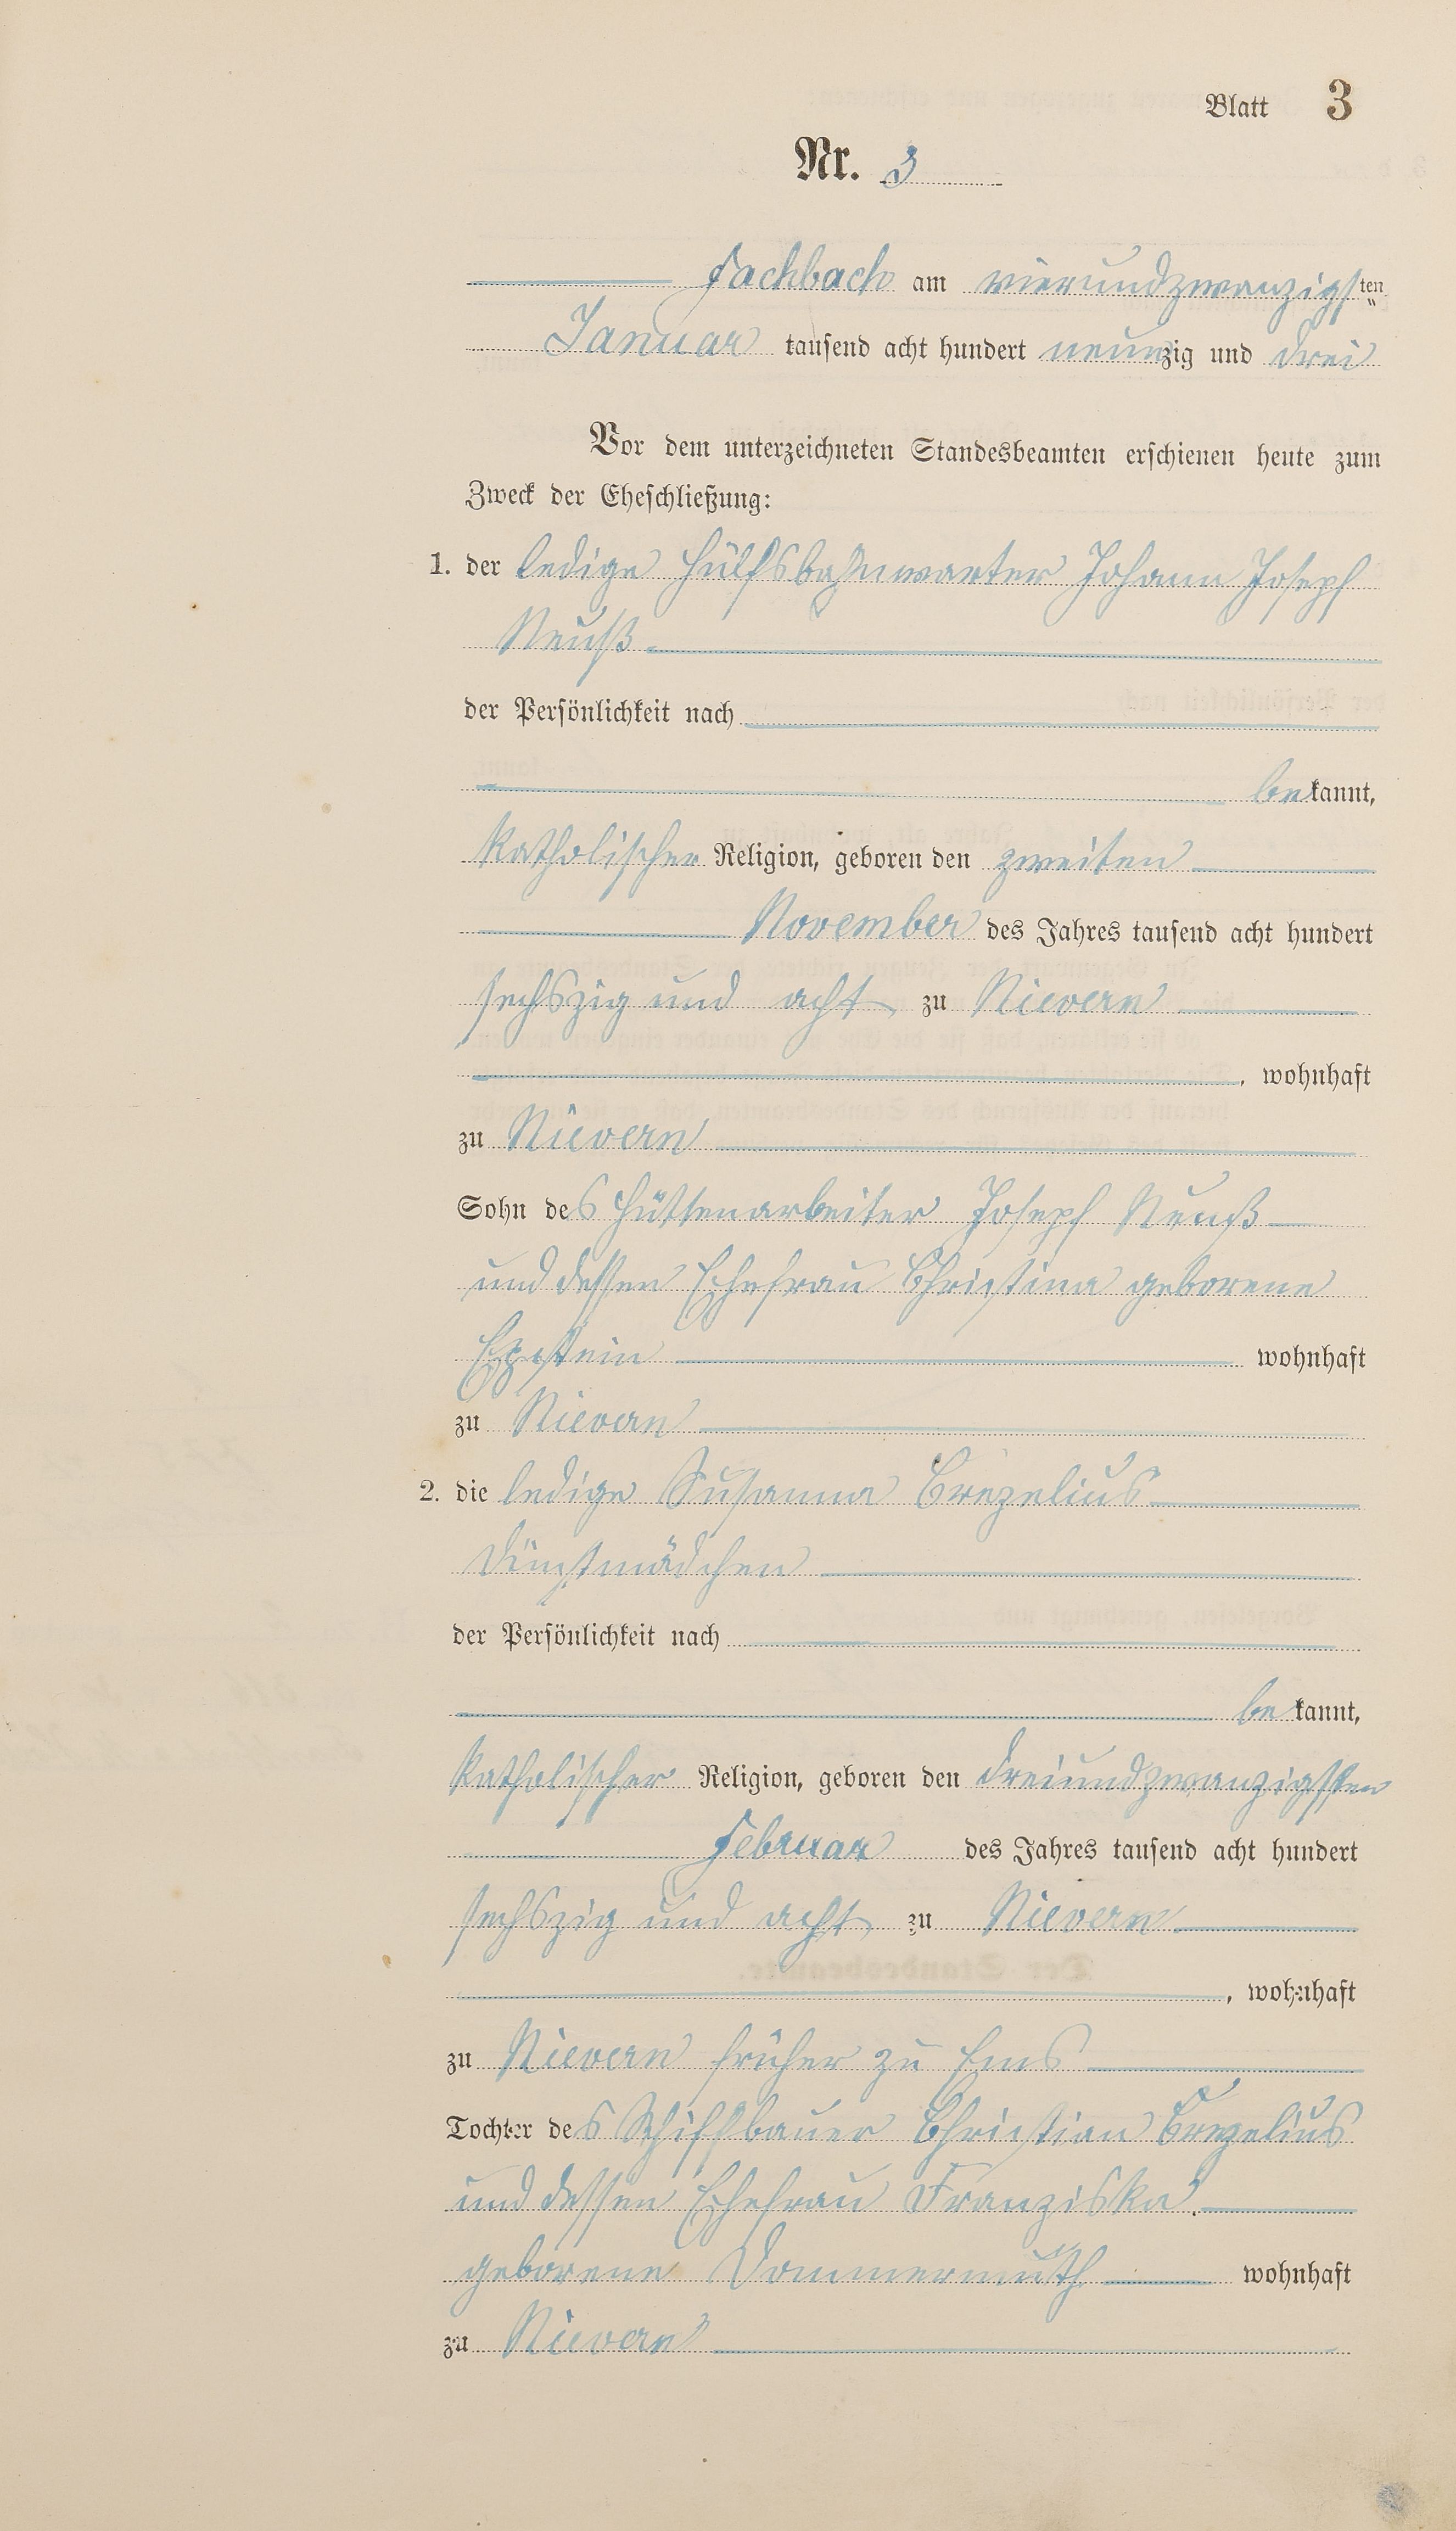 Blatt 3
Nr. 3
Fachbach am vierundzwanzigsten
Januar tausend acht hundert neunzig und drei
Vor dem unterzeichneten Standesbeamten erschienen heute zum
Zweck der Eheschließung:
1. der ledige Hülfsbahnwarter Johann Joseph
Neuß
der Persönlichkeit nach
bekannt,
katholischer Religion, geboren den zweiten
November des Jahres tausend acht hundert
sechszig und acht zu Nievern
, wohnhaft
zu Nievern
Sohn des Hüttenarbeiter Joseph Neuß
und dessen Ehefrau Christina geborene
Epstein wohnhaft
zu Nievern
2. die ledige Susanna Crezelius
Dienstmädchen
der Persönlichkeit nach
bekannt,
katholischer Religion, geboren den dreiundzwanzigsten
Februar des Jahres tausend acht hundert
sechszig und acht zu Nievern
, wohnhaft
zu Nievern früher zu Ems
Tochter des Schiffbauer Christian Crezelius
und dessen Ehefrau Franziska
geborene Dommermuth wohnhaft
zu Nievern